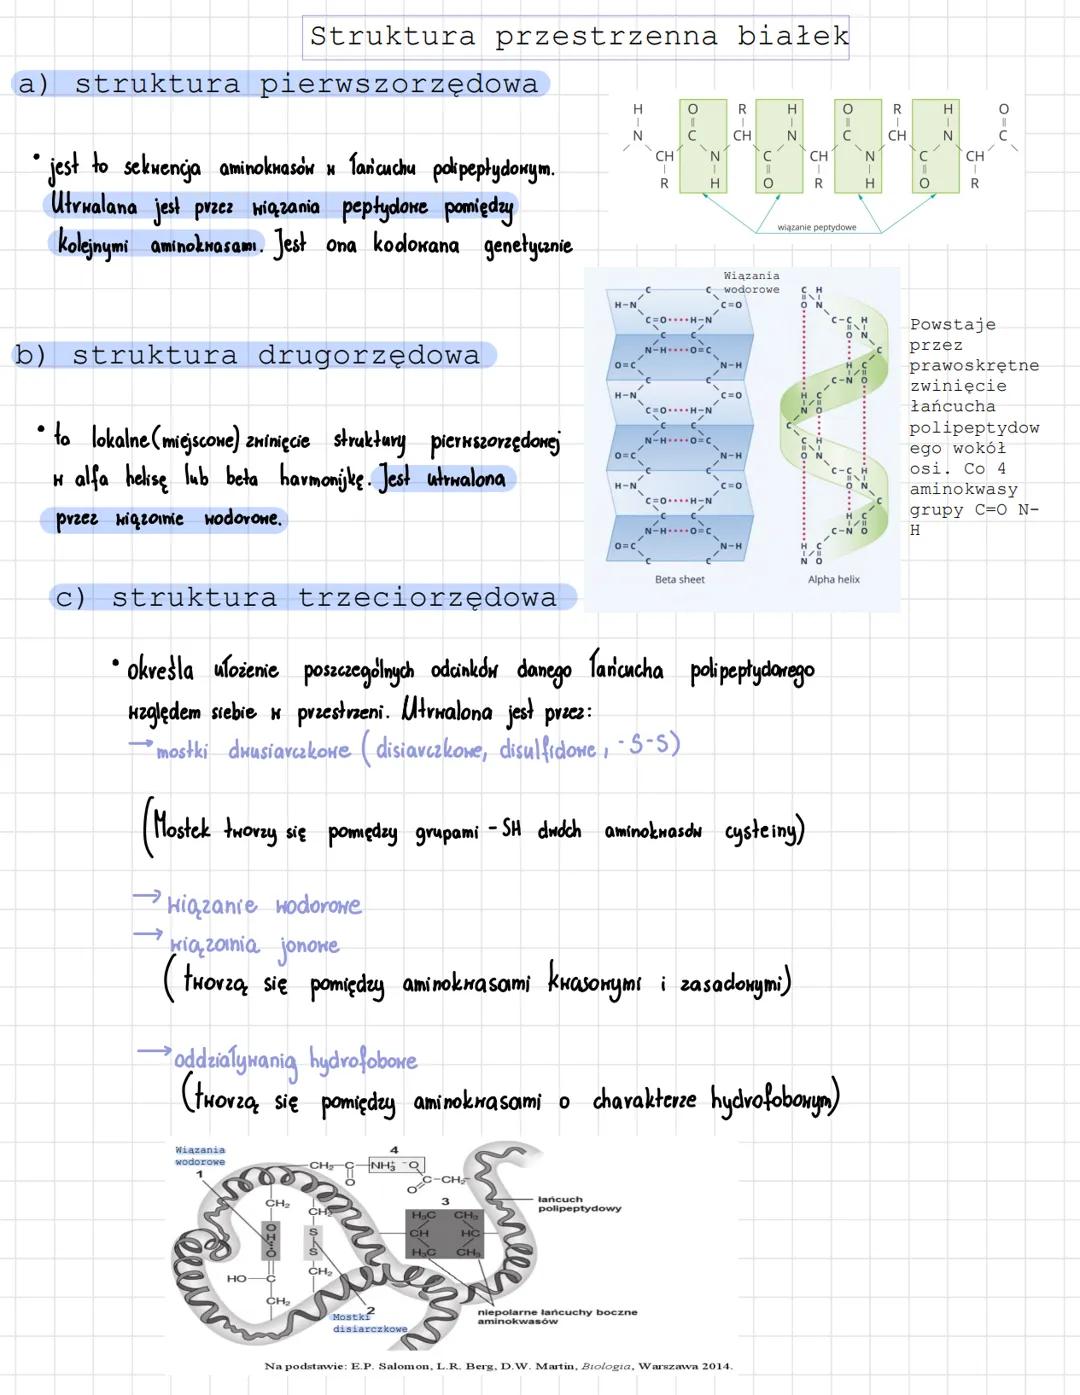 Struktura przestrzenna białek
a) struktura pierwszorzędowa
• jest to sekwencja aminokwasów w łańcuchu polipeptydowym.
Utrwalana jest przez wiązania peptydowe pomiędzy
kolejnymi aminokwasami. Jest ona kodowana genetycznie
wiązanie peptydowe
b) struktura drugorzędowa
• to lokalne (miejscowe) zwinięcie struktury pierwszorzędowej
w alfa helisę lub beta harmonijkę. Jest utrwalona
przez wiązanie wodorowe.
Wiązania
wodorowe
Beta sheet
Alpha helix
Powstaje
przez
prawoskrętne
zwinięcie
łańcucha
polipeptydow
ego wokół
osi. Co 4
aminokwasy
grupy C=O N-
H
c) struktura trzeciorzędowa
• określa ułożenie poszczególnych odcinków danego łańcucha polipeptydowego
względem siebie w przestrzeni. Utrwalona jest przez:
→ mostki dwusiarczkowe (disiarczkowe, disulfidowe, -S-S)
(Mostek tworzy się pomiędzy grupami -SH dwóch aminokwasów cysteiny)
→ wiązanie wodorowe
→ wiązania jonowe
(tworzą się pomiędzy aminokwasami kwasowymi i zasadowymi)
→ oddziaływania hydrofobowe
(tworzą się pomiędzy aminokwasami o charakterze hydrofobowym)
Wiązania
wodorowe
1
4
CH₂ C NH₃⁺ ⁻O
O
C-CH₂
O
3
łańcuch
polipeptydowy
CH₂
CH₂
H₃C CH₃
CH HC
H₃C CH₃
S
S
HO C
CH₂
CH₂
2
Mostki
disiarczkowe
niepolarne łańcuchy boczne
aminokwasów
Na podstawie: E.P. Salomon, L.R. Berg, D.W. Martin, Biologia, Warszawa 2014.